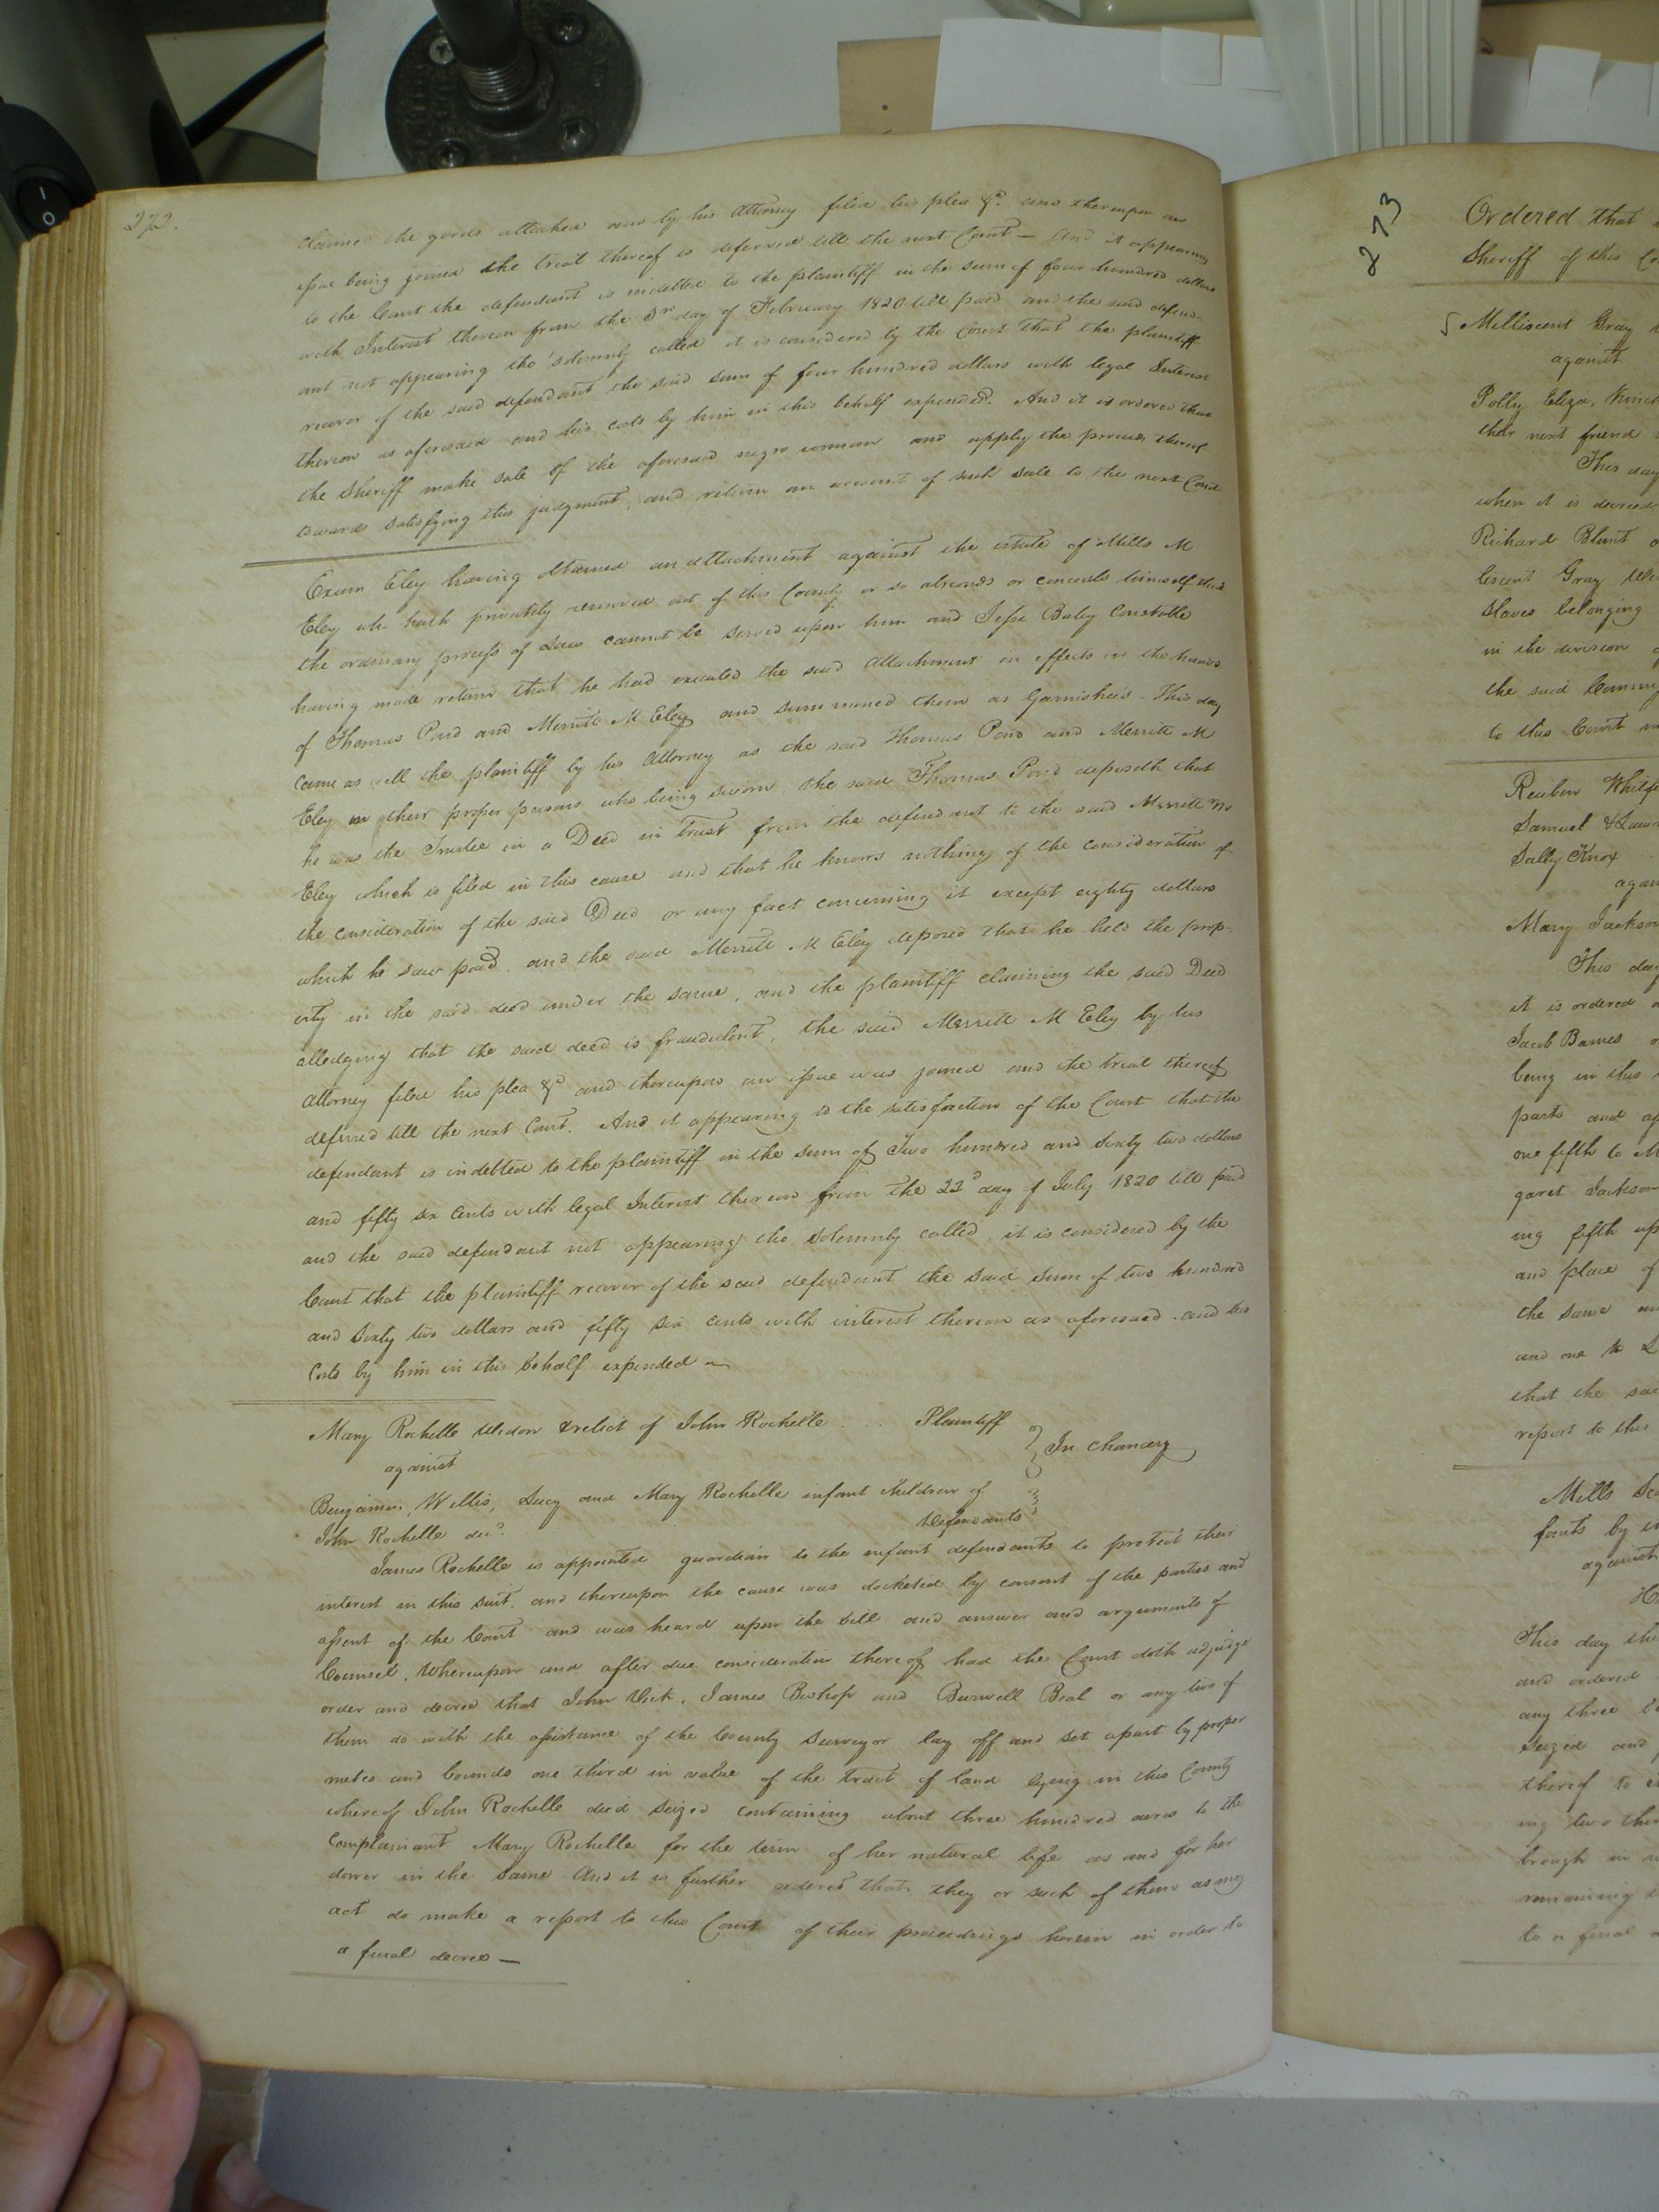 272.
claimed the goods attached and by his Attorney filed his plea &c. and thereupon an
issue being joined the trial thereof is deferred till the next Court — And it appearing
to the Court the defendant is indebted to the plaintiff in the sum of four hundred dollars
with Interest thereon from the 3rd day of February 1820 till paid and the said defend-
ant not appearing tho' solemnly called it is considered by the Court that the plaintiff
recover of the said defendant the said sum of four hundred dollars with legal Interest
thereon as aforesaid and his costs by him in this behalf expended. And it is ordered that
the Sheriff make sale of the aforesaid negro woman and apply the proceeds thereof
towards satisfying this judgment, and return an account of such sale to the next Court
Exum Eley having obtained an attachment against the estate of Mills M
Eley who hath privately removed out of this County or so absconds or conceals himself that
the ordinary process of Law cannot be served upon him and Jesse Baley Constable
having made return that he had executed the said Attachment in effects in the hands
of Thomas Pond and Merritt M Eley and summoned them as Garnishees - This day
Came as well the plaintiff by his Attorney as the said Thomas Pond and Merritt M
Eley in their proper persons who being sworn, the said Thomas Pond deposeth that
he was the Trustee in a Deed in Trust from the defendant to the said Merritt M
Eley which is filed in this cause and that he knows nothing of the consideration of
the consideration of the said Deed or any fact concerning it except eighty dollars
which he saw paid, and the said Merritt M Eley deposed that he held the prop-
erty in the said deed under the same, and the plaintiff claiming the said Deed
alledging that the said deed is fraudulent, the said Merritt M Eley by his
attorney filed his plea &c and thereupon an issue was joined and the trial thereof
deferred till the next Court. And it appearing to the satisfaction of the Court that the
defendant is indebted to the plaintiff in the sum of Two hundred and Sixty two dollars
and fifty six Cents with legal Interest thereon from the 22d day of July 1820 till paid
and the said defendant not appearing tho solemnly called, it is considered by the
Court that the plaintiff recover of the said defendant the said sum of two hundred
and Sixty two dollars and fifty six cents with interest thereon as aforesaid, and his
Costs by him in this behalf expended
Mary Rochelle Widow & relict of John Rochelle . . . Plaintiff
against
In Chancery
Benjamin, Willis, Lucy and Mary Rochelle infant Children of
John Rochelle decd. Defendants
James Rochelle is appointed guardian to the infant defendants to protect their
interest in this suit, and thereupon the cause was docketed by consent of the parties and
assent of the Court and was heard upon the bill and answer and arguments of
Counsel, Whereupon and after due consideration thereof had the Court doth adjudge
order and decree that John Vick, James Bishop and Burwell Beal or any two of
them do with the assistance of the County Surveyor lay off and set apart by proper
metes and bounds one third in value of the tract of land lying in this County
whereof John Rochelle died seized containing about three hundred acres to the
Complainant Mary Rochelle for the term of her natural life as and for her
dower in the same And it is further ordered that they or such of them as may
act do make a report to the Court of their proceedings herein in order to
a final decree —
273
Ordered that
Sheriff of this Co
Milliscent Gray
against
Polly, Eliza,
their next friend
This day
when it is decreed
Richard Blunt
liscent Gray
Slaves belonging
in the division
the said
to this Court
Reuben
Samuel &
Sally Knox
again
Mary Jackson
This day
it is ordered
Jacob Barnes
being in this
parts and
one fifth to M
garet Jackson
ing fifth
and place of
the same
and one to
that the said
report to this
Mills
fants by
against
This day the
and ordered
any three
Seized and
thereof to
ing two thir
brough in
remaining
to a final